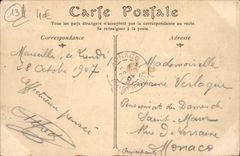 13
40€
Carte Postale
Tous les pays étrangers n'acceptent pas la correspondance au recto.
Se renseigner à la poste.
Correspondance
Adresse
Marseille, le Lundi
28 Octobre 1907
Affectueuse pensée
Mademoiselle
Verlaque
Pensionnat des Dames de
Saint-Maur
Rue de Lorraine
Monaco